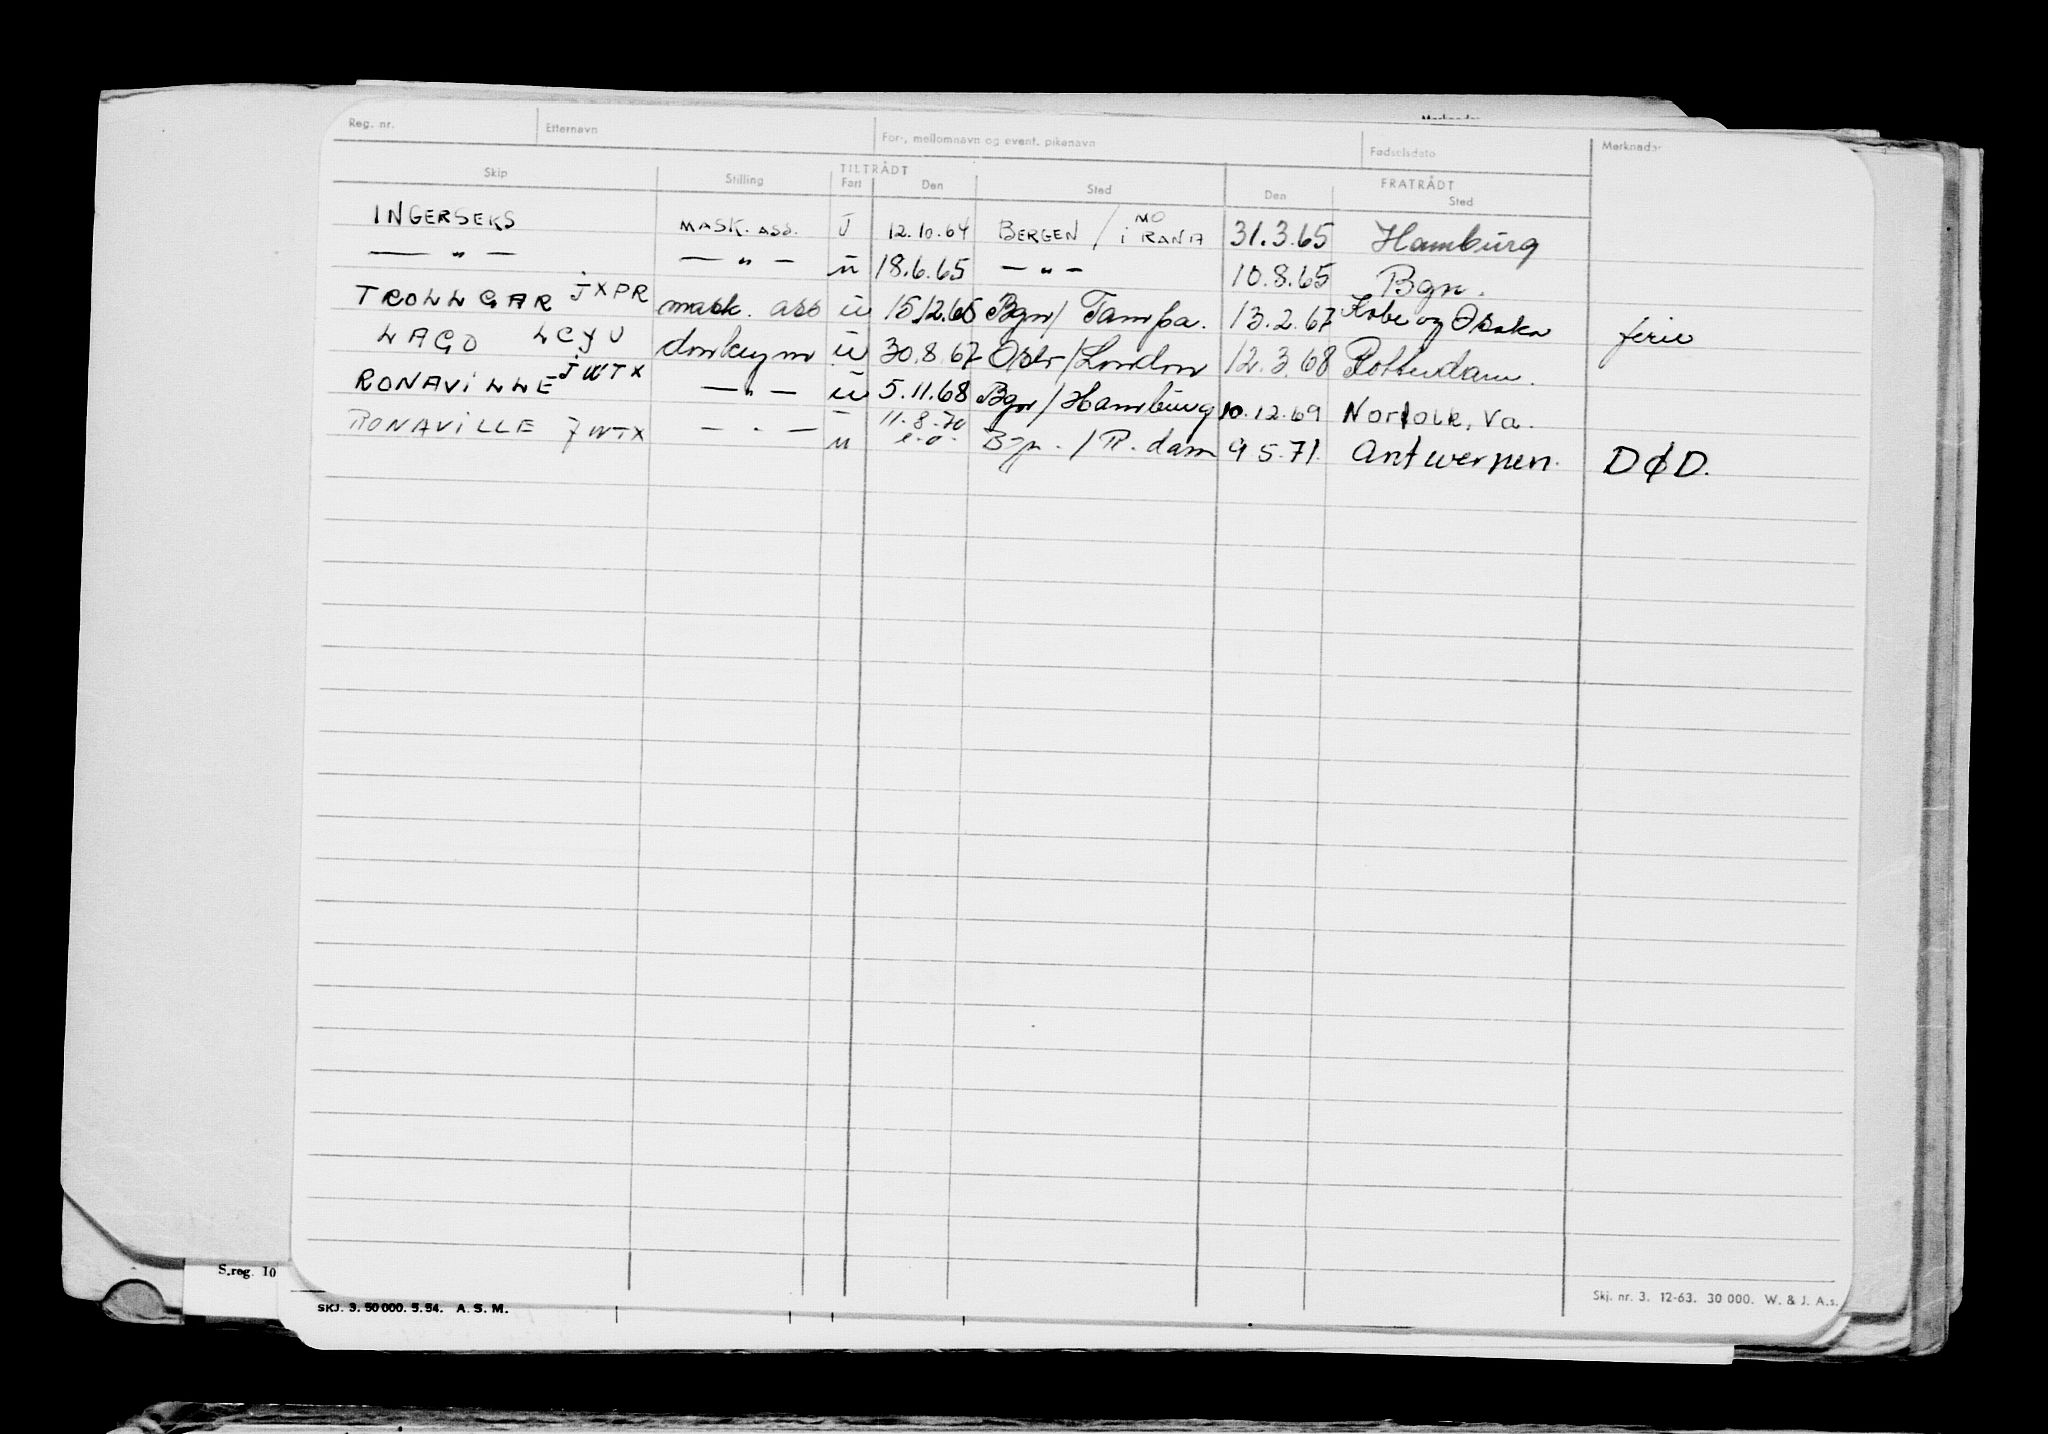 Reg. nr. Etternavn For-, mellomnavn og event. pikenavn Fødselsdato Merknader
TILTRÅDT FRATRÅDT
Skip Stilling Fart Den Sted Den Sted
INGERSEKS MASK. ASS. U 12.10.64 BERGEN / MO i RANA 31.3.65 Hamburg
— " — — " — u 18.6.65 — " — 10.8.65 Bgn.
TROLLGAR JXPR mask. ass u 15/12.65 Bgn/ Tampa. 13.2.67 Kobe og Osaka ferie
LAGO LCYU donkeym u 30.8.67 Oslo/London 12.3.68 Rotterdam.
RONAVILLE JWTX — " — u 5.11.68 Bgn/Hamburg 10.12.69 Norfolk, Va.
RONAVILLE JWTX — " — u 11.8.70 e.o. Bgn. / R.dam 9.5.71. Antwerpen. DØD.
S.reg. 10
SKJ. 3. 50 000. 5.54. A. S. M.
Skj. nr. 3. 12-63. 30 000. W. & J. A.s.